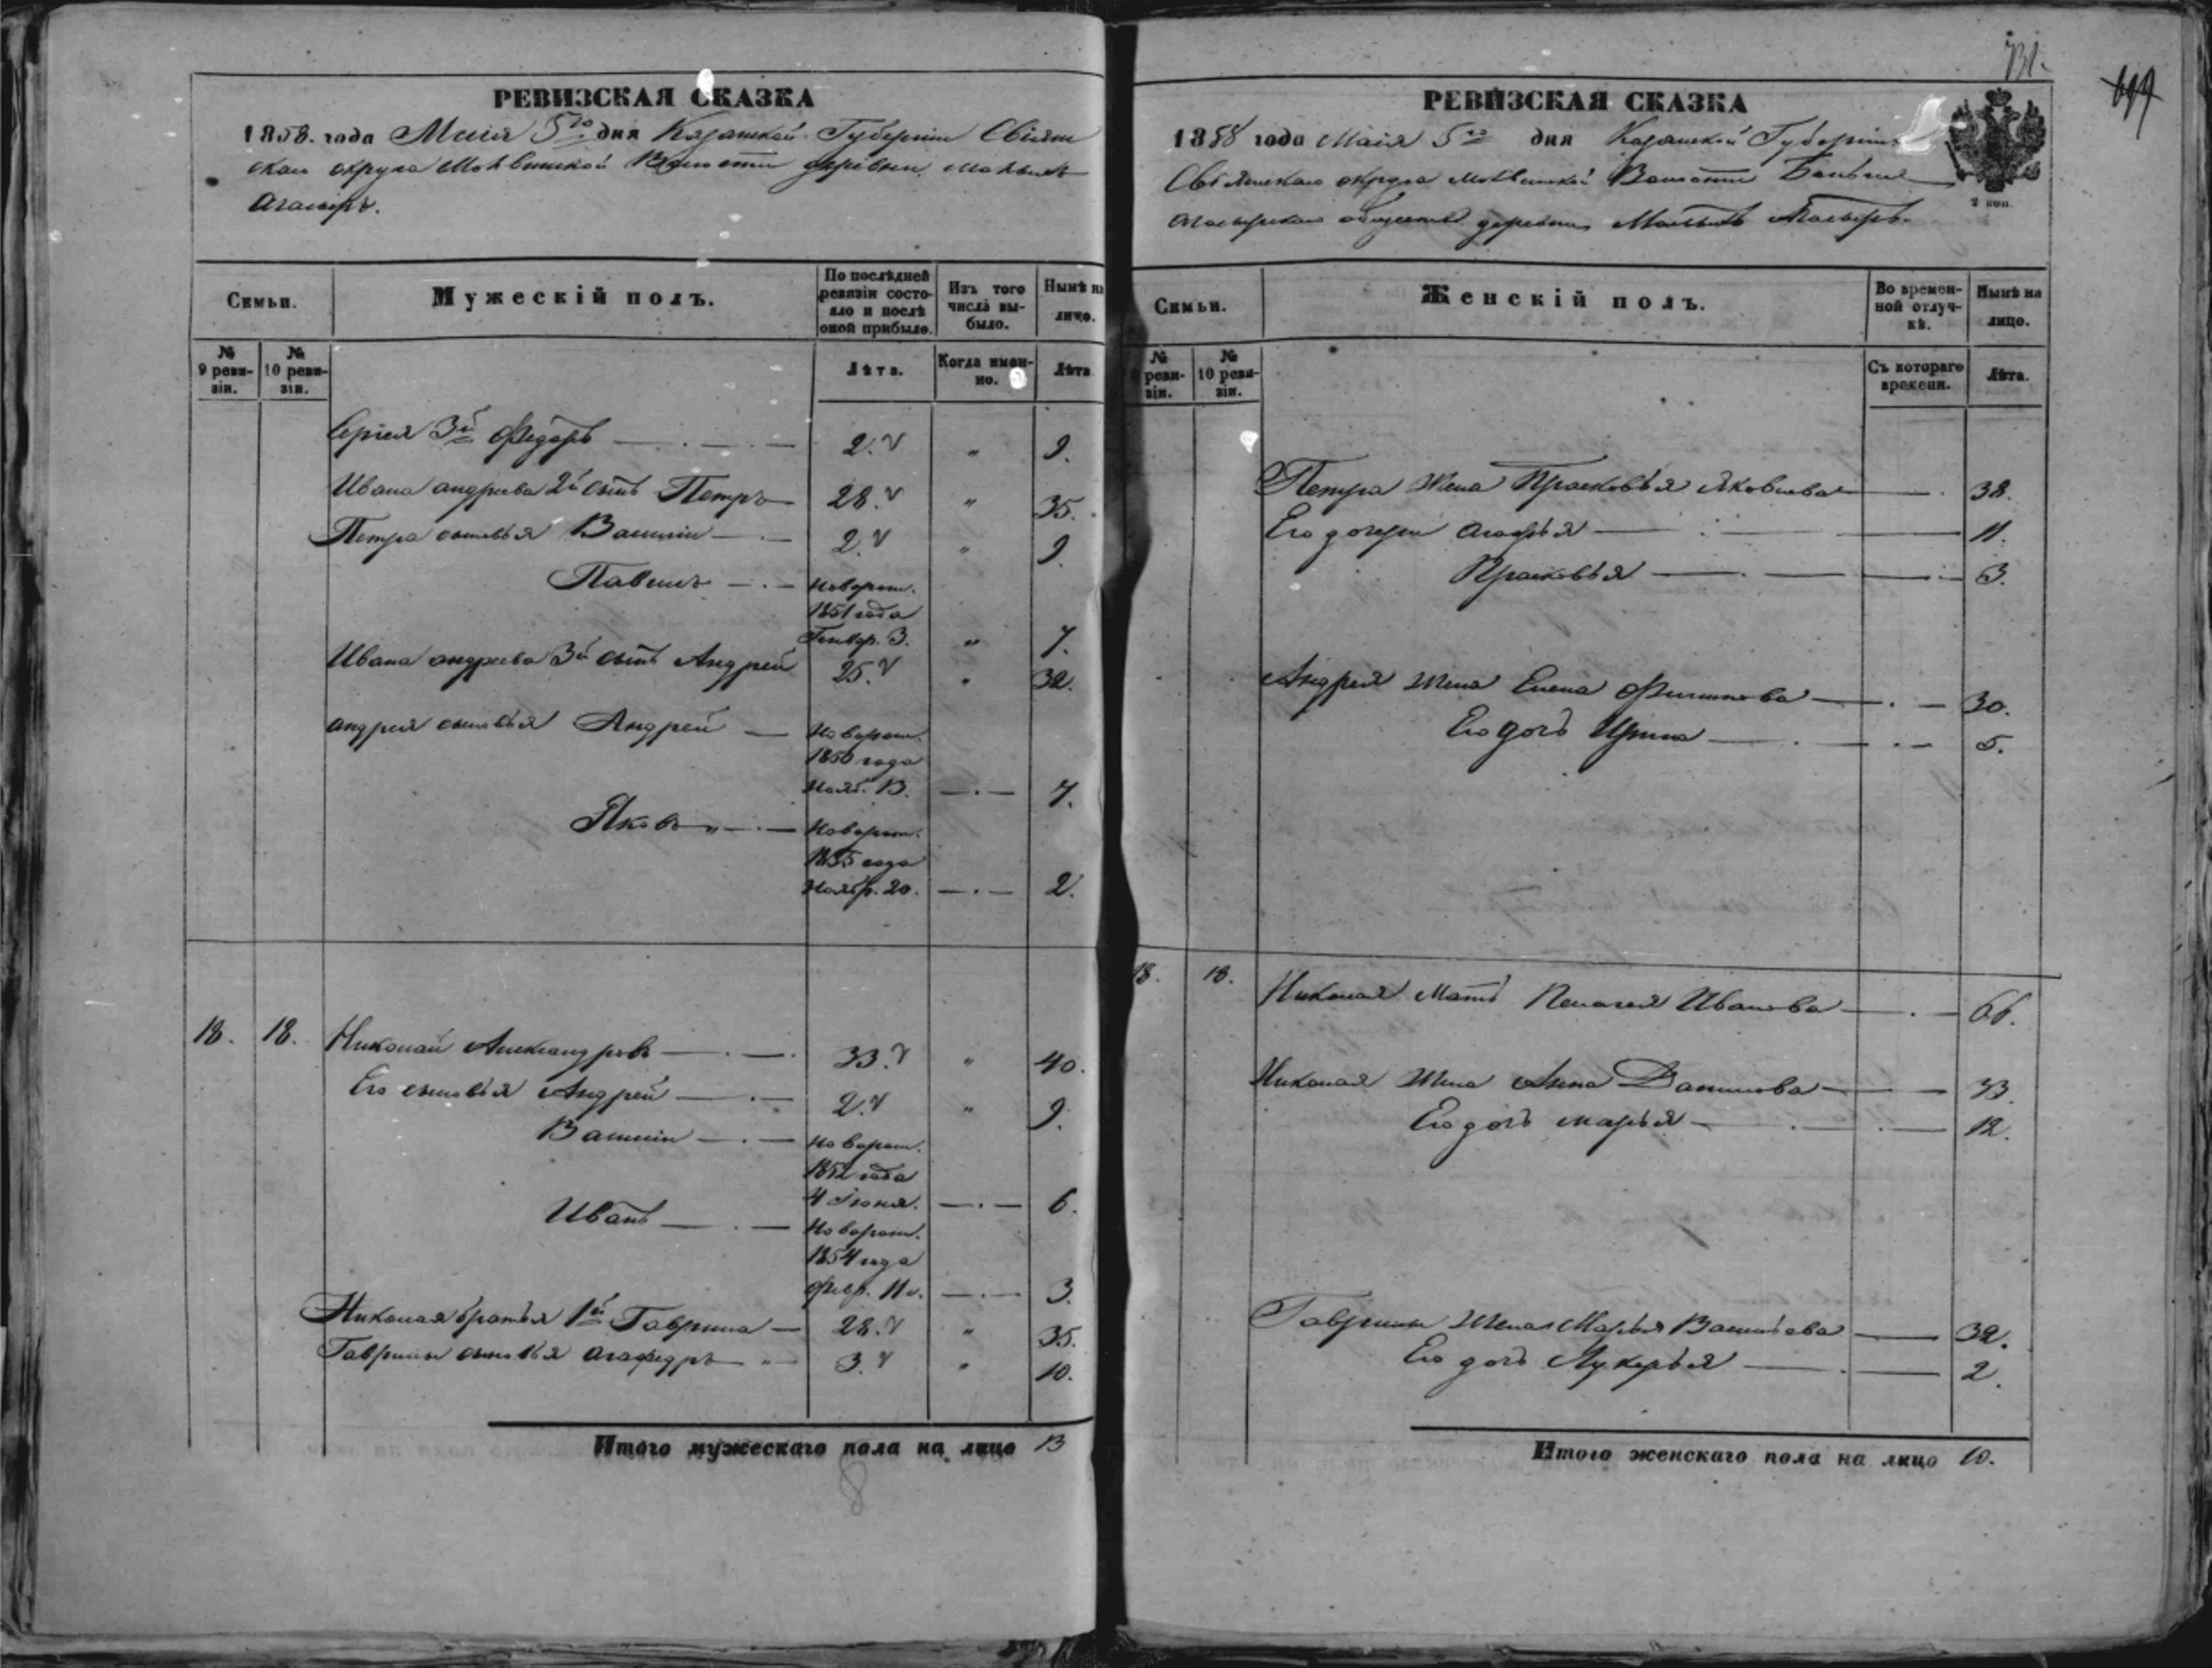 РЕВИЗСКАЯ СКАЗКА
1858. года Маія 5го дня Казанской Губерніи Свіяж
скаго округа Волости деревни Малыхъ
РЕВИЗСКАЯ СКАЗКА
1858 года Маія 5го дня Казанской Губерніи
Свіяжскаго округа Волости Больше
общества деревни Малыхъ
2 коп.
Семьи.
Мужескій полъ.
По послѣдней ревизіи состояло и послѣ оной прибыло.
Изъ того числа выбыло.
Нынѣ на лицо.
№ 9 ревизіи.
№ 10 ревизіи.
Лѣта.
Когда именно.
Лѣта
Сергея 3й Федоръ 2. " 9.
Ивана андреева 2й сынъ Петръ 28. " 35.
Петра сыновья Василіи 2. " 9.
Павелъ новорож.
1851 года
Генвар. 3. " 7.
Ивана андреева 3й сынъ Андрей 25. " 32.
андрея сыновья Андрей новорож.
1850 года
Нояб. 13. 7.
Яковъ новорож.
1855 года
Ноябр. 20. 2.
18. 18. Николай Александровъ 33. " 40.
Его сыновья Андрей 2. " 9.
Василіи новорож.
1852 года
4 Іюня. 6.
Иванъ новорож.
1854 года
Февр. 11. 3.
Николая братья 1й Гаврила 28. " 35.
Гаврилы сыновья 3. " 10.
Итого мужескаго пола на лицо 13
8
Семьи.
Женскій полъ.
Во временной отлучкѣ.
Нынѣ на лицо.
№ ревизіи.
№ 10 ревизіи.
Съ котораго времени.
Лѣта.
Петра жена Прасковья Яковлева 38.
Его дочери агафья 11.
Прасковья 3.
Андрея жена Елена Филипова 30.
Его дочь Ирина 5.
18. 18. Николая мать Пелагея Иванова 66.
Николая жена Анна Данилова 33.
Его дочь марья 12.
Гаврилы жена Марья Васильева 32.
Его дочь Лукерья 2.
Итого женскаго пола на лицо 10.